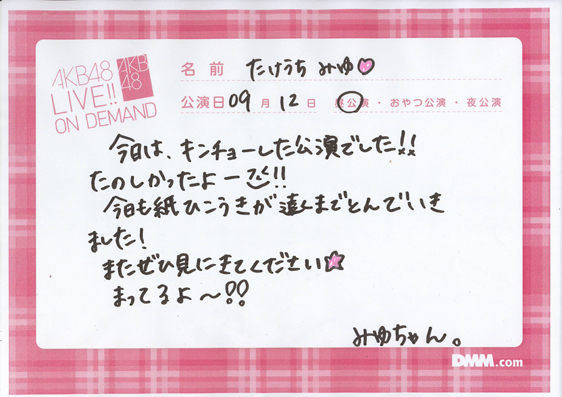 AKB48
LIVE!!
ON DEMAND
AKB
48
名前 たけうち みゆ♡
公演日 09月12日 昼公演・おやつ公演・夜公演
今日は、キンチョーした公演でした!!
たのしかったよー!!
今日も紙ひこうきが遠くまでとんでいき
ました!
またぜひ見にきてください☆
まってるよ〜!!
みゆちゃん。
DMM.com